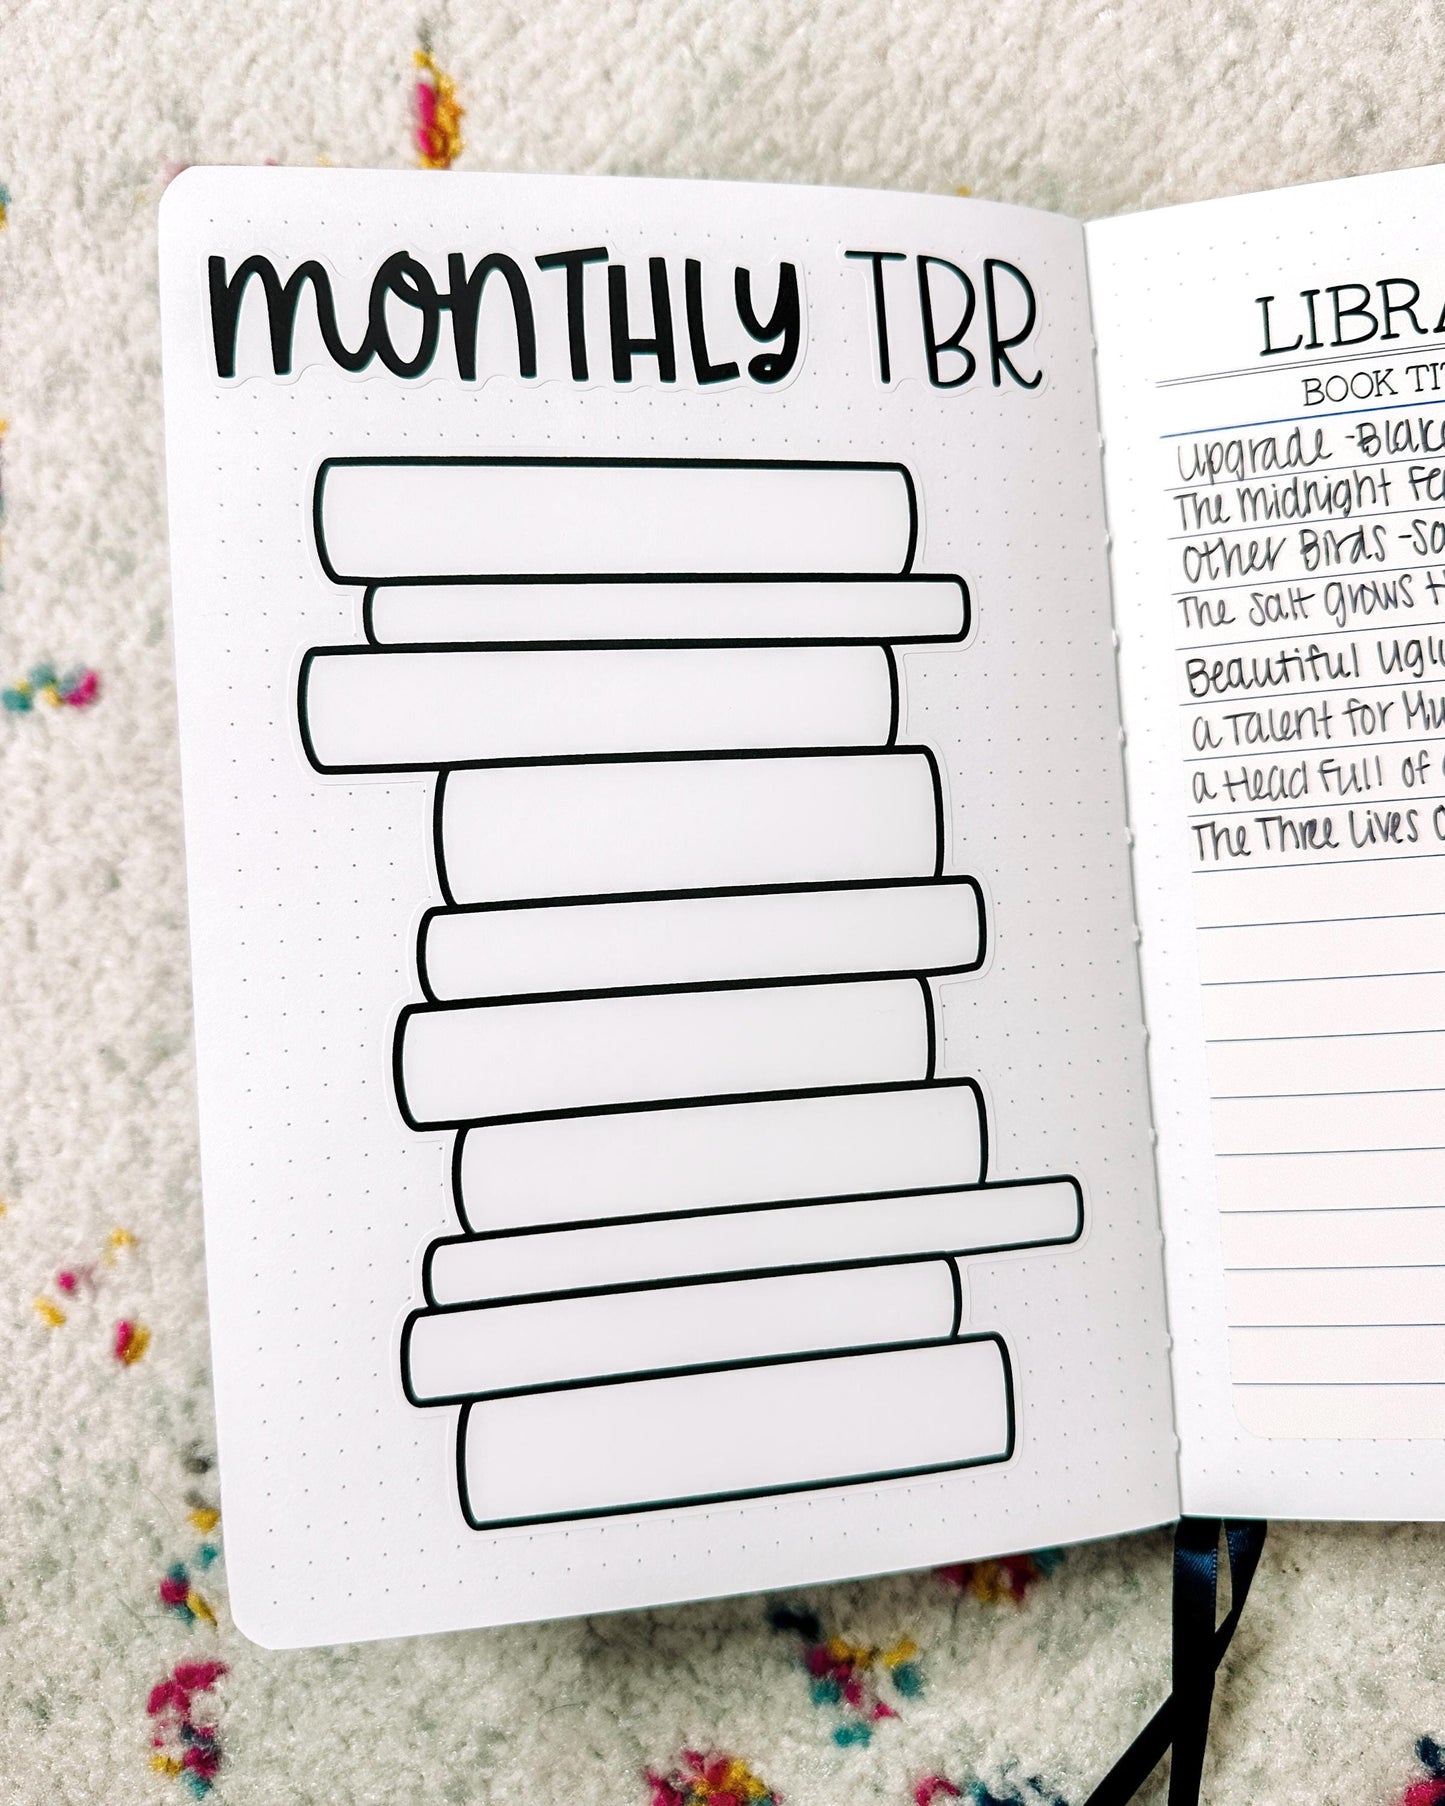 monthly TBR
LIBRA
BOOK TIT
Upgrade - Blake
The Midnight Fe
Other Birds - Sa
The Salt Grows H
Beautiful Ugly
a Talent for Mu
a Head Full of
The Three Lives O